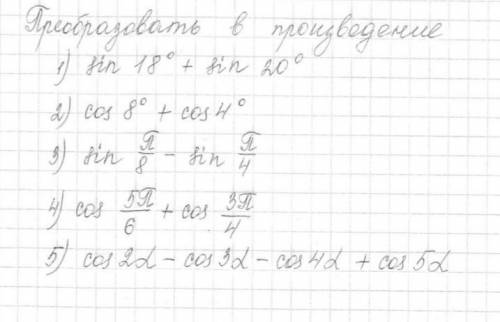 Преобразовать в произведение
1) sin 18° + sin 20°
2) cos 8° + cos 4°
3) sin π/8 - sin π/4
4) cos 5π/6 + cos 3π/4
5) cos 2α - cos 3α - cos 4α + cos 5α